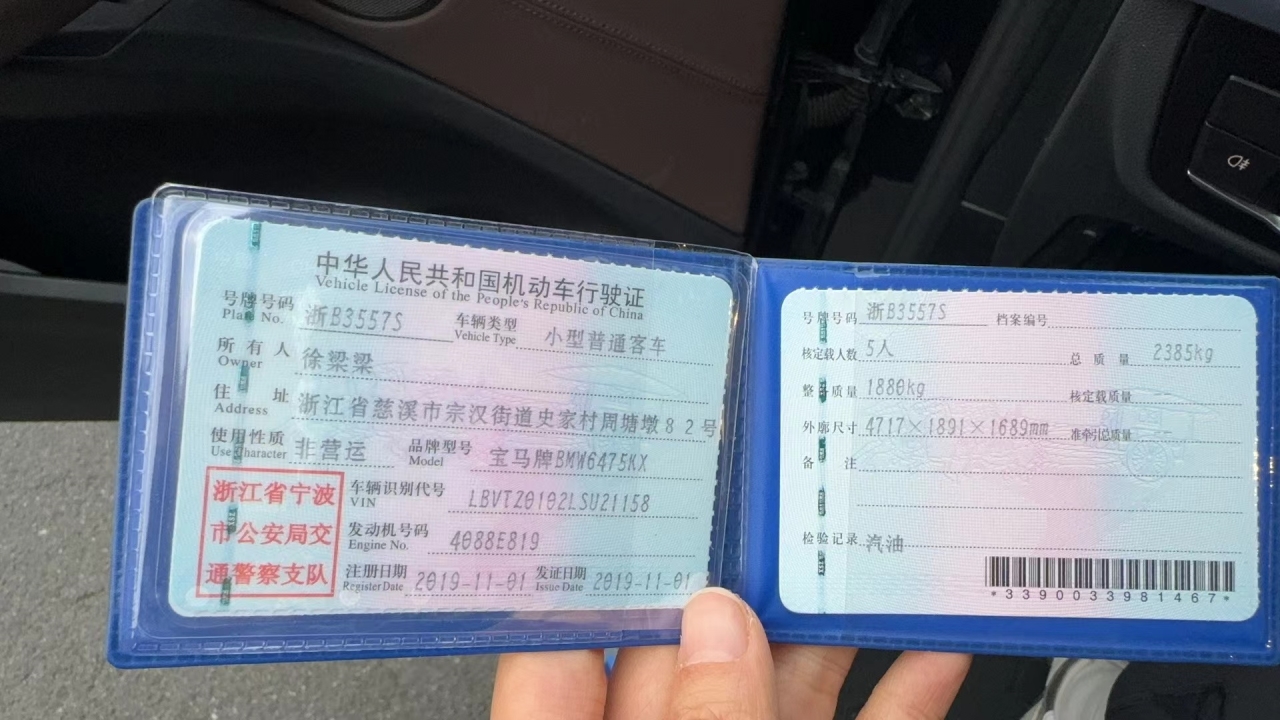 中华人民共和国机动车行驶证
Vehicle License of the People's Republic of China
号牌号码 浙B3557S 车辆类型 小型普通客车
Plate No. Vehicle Type
所有人 徐梁梁
Owner
住址 浙江省慈溪市宗汉街道史家村周塘墩82号
Address
使用性质 非营运 品牌型号 宝马牌BMW6475KX
Use Character Model
浙江省宁波
市公安局交
通警察支队
车辆识别代号 LBVTZ0102LSU21158
VIN
发动机号码 4088E819
Engine No.
注册日期 2019-11-01 发证日期 2019-11-01
Register Date Issue Date
号牌号码 浙B3557S 档案编号
核定载人数 5人 总质量 2385kg
整备质量 1880kg 核定载质量
外廓尺寸 4717×1891×1689mm 准牵引总质量
备注
检验记录 汽油
*3390033981467*